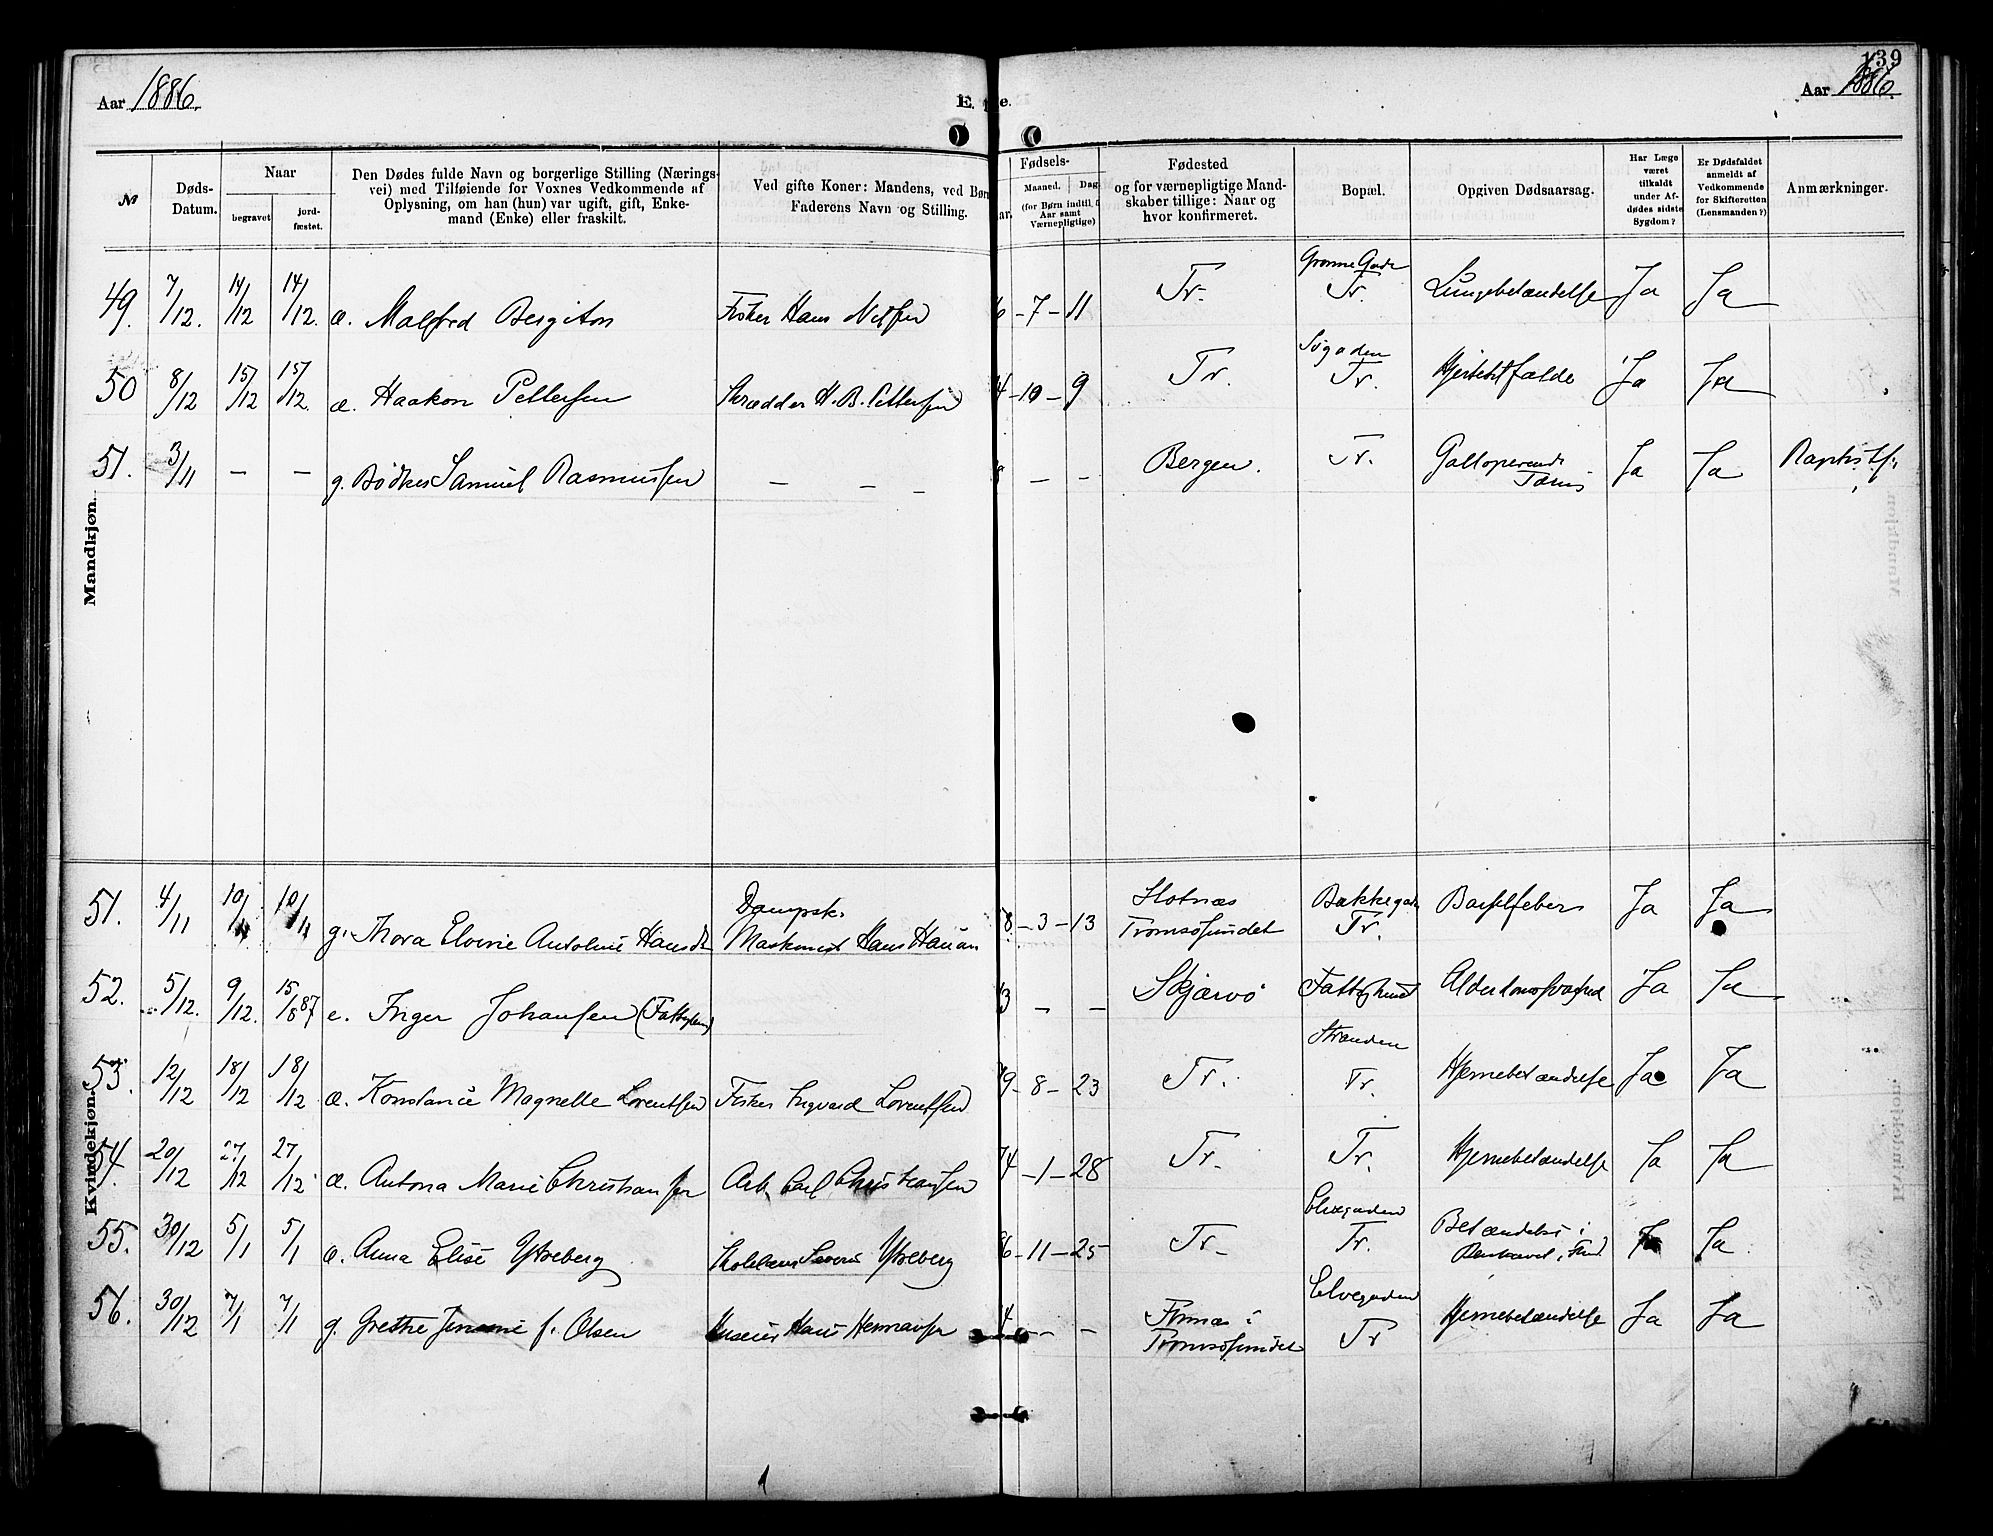 139
Aar 1886.
Aar 1886.
E. e.
№
Døds-Datum.
Naar
begravet
jord-fæstet.
Den Dødes fulde Navn og borgerlige Stilling (Nærings-
vei) med Tilføiende for Voxnes Vedkommende af
Oplysning, om han (hun) var ugift, gift, Enke-
mand (Enke) eller fraskilt.
Ved gifte Koner: Mandens, ved Børn
Faderens Navn og Stilling.
Fødsels-
Maaned. Dag.
(for Børn indtil
Aar samt
Værnepligtige)
Fødested
og for værnepligtige Mand-
skaber tillige: Naar og
hvor konfirmeret.
Bopæl.
Opgiven Dødsaarsag.
Har Læge
været
tilkaldt
under Af-
dødes sidste
Sygdom?
Er Dødsfaldet
anmeldt af
Vedkommende
for Skifteretten
(Lensmanden?)
Anmærkninger.
Mandkjøn.
49. 7/12. 14/12 14/12. æ. Malfred Bergiton Fisker Hans Nilsen 6 - 7 - 11 Tr. Grønne Gade Tr. Lungebetændelse Ja Ja
50 8/12 15/12 15/12. æ. Haakon Pettersen Skrædder H. B. Pettersen 4 - 10 - 9 Tr. Søgaden Tr. Hjertefeil Ja Ja
51. 3/11 - - g. Bødker Samuel Rasmussen - - - - - Bergen. Tr. Galloperende Tæring Ja Ja
Kvindekjøn.
51. 4/11 10/11 10/11 g. Thora Elvine Antoline Dampsk. Maskinist Hans Hauan 8 - 3 - 13 Tromsøsundet Bakkegad Tr. Barselfeber Ja Ja
52. 5/12. 9/12. 15/8 87 e. Inger Johansen (Fattiglem) 3 - - Skjærvø Alderdomssvaghed Ja Ja
53. 12/12 18/12 18/12 æ. Konstance Magnelle Lorentsen Fisker Ingvard Lorentsen 9 - 8 - 23 Tr. Stranden Tr. Hjernebetændelse Ja Ja
54. 20/12 27/12 27/12 æ. Antona Marie Christiansen Arb. Carl Christiansen 4 - 1 - 28 Tr. Tr. Hjernebetændelse Ja Ja
55. 30/12 5/1 5/1 æ. Anna Elise Ytreberg Ytreberg 6 - 11 - 25 Tr. Elvegaden Tr. Betændelse i Ja Ja
56. 30/12 7/1 7/1 g. Grethe f. Olsen Hans Hermansen 4 - - - Tromsøsundet Elvegaden Tr Hjernebetændelse Ja Ja